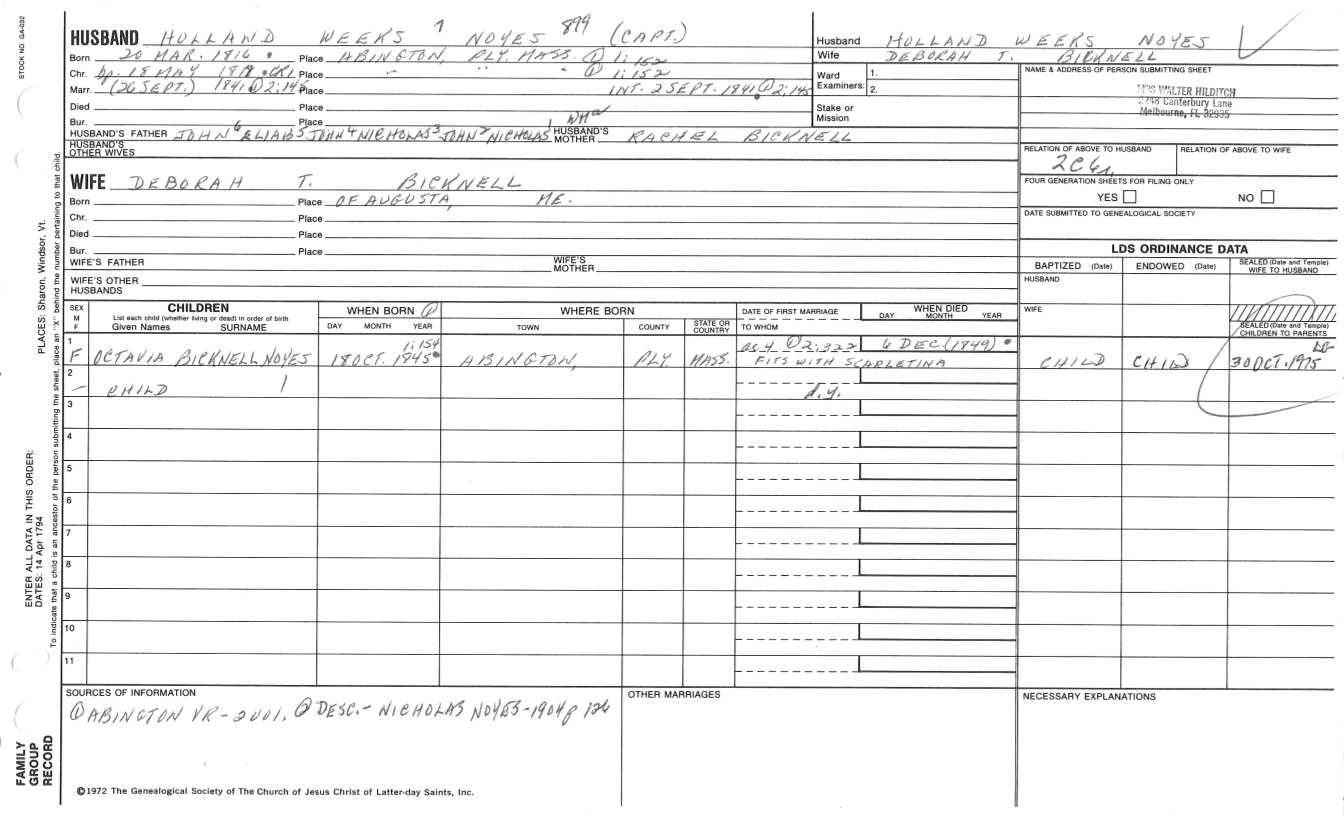 STOCK NO. GA-032
HUSBAND HOLLAND WEEKS 7 NOYES 899 (CAPT.)
Born 20 MAR. 1816 Place ABINGTON, PLY. MASS. ① 1:152
Chr. bp. 18 MAY CR1. Place " " " ① 1:152
Marr. (26 SEPT.) 1841 ② 2:145 Place INT. 2 SEPT. 1841 ② 2:145
Died Place
Bur. Place
HUSBAND'S FATHER JOHN 6 ELIAB 5 JOHN 4 NICHOLAS 3 JOHN 2 NICHOLAS 1 HUSBAND'S MOTHER RACHEL BICKNELL
HUSBAND'S OTHER WIVES
WIFE DEBORAH T. BICKNELL
Born Place OF AUGUSTA, ME.
Chr. Place
Died Place
Bur. Place
WIFE'S FATHER WIFE'S MOTHER
WIFE'S OTHER HUSBANDS
Husband HOLLAND WEEKS NOYES
Wife DEBORAH T. BICKNELL
Ward Examiners: 1. 2.
Stake or Mission
NAME & ADDRESS OF PERSON SUBMITTING SHEET
MRS WALTER HILDITCH
2298 Canterbury Lane
Melbourne, FL 32935
RELATION OF ABOVE TO HUSBAND RELATION OF ABOVE TO WIFE
FOUR GENERATION SHEETS FOR FILING ONLY
YES NO
DATE SUBMITTED TO GENEALOGICAL SOCIETY
LDS ORDINANCE DATA
BAPTIZED (Date) ENDOWED (Date) SEALED (Date and Temple) WIFE TO HUSBAND
HUSBAND
WIFE
SEALED (Date and Temple) CHILDREN TO PARENTS
SEX M F
CHILDREN
List each child (whether living or dead) in order of birth
Given Names SURNAME
WHEN BORN ①
DAY MONTH YEAR
WHERE BORN
TOWN COUNTY STATE OR COUNTRY
DATE OF FIRST MARRIAGE
TO WHOM
WHEN DIED
DAY MONTH YEAR
1 F OCTAVIA BICKNELL NOYES 18 OCT. 1845 1:154 ABINGTON, PLY. MASS. ae. 4 ② 2:322 6 DEC. (1849) FITS WITH SCARLETINA CHILD CHILD 30 OCT. 1975
2 — CHILD d.y.
3
4
5
6
7
8
9
10
11
SOURCES OF INFORMATION
① ABINGTON VR - 2 VOL. ② DESC. - NICHOLAS NOYES - 1904 p 126
OTHER MARRIAGES
NECESSARY EXPLANATIONS
©1972 The Genealogical Society of The Church of Jesus Christ of Latter-day Saints, Inc.
FAMILY GROUP RECORD
ENTER ALL DATA IN THIS ORDER:
DATES: 14 Apr 1794
PLACES: Sharon, Windsor, Vt.
To indicate that a child is an ancestor of the person submitting the sheet, place an "X" behind the number pertaining to that child.